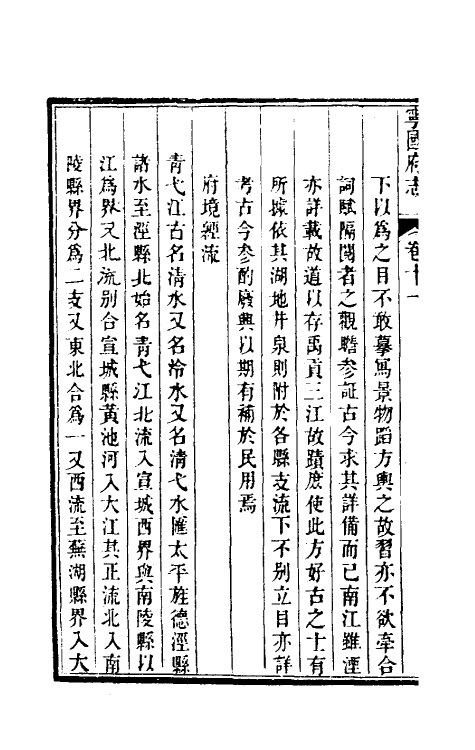 寧國府志
卷十一
下以爲之目不敢摹寫景物蹈方輿之故習亦不欲牽合
詞賦隔閡者之觀瞻參証古今求其詳備而已南江雖湮
亦詳載故道以存禹貢三江故蹟庻使此方好古之士有
所據依其湖地井泉則附於各縣支流下不别立目亦詳
考古今參酌廢興以期有補於民用焉
府境經流
青弋江古名清水又名泠水又名清弋水匯太平旌德涇縣
諸水至涇縣北始名青弋江北流入宣城西界與南陵縣以
江爲界又北流别合宣城縣黄池河入大江其正流北入南
陵縣界分爲二支又東北合爲一又西流至蕪湖縣界入大